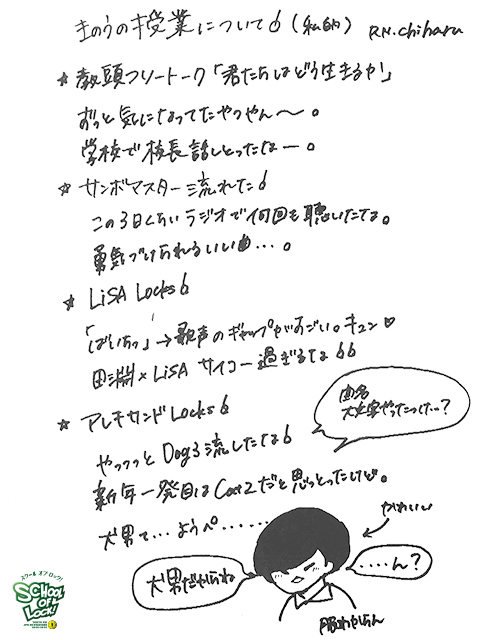 きのうの授業について6（私的） RN.chiharu
★ 教頭フリートーク「君たちはどう生きるか」
ずっと気になってたやつやん〜。
学校で校長話しとったなー。
★ サンボマスター流れた6
この3日くらいラジオで何回も聴いたな。
勇気づけられるいい曲…。
★ LiSA Locks6
「ばいちっ」→歌声のギャップがすごい。キュン♡
田淵×LiSA サイコー過ぎるな66
★ アレキサンドLocks6
曲名
大丈夫やったっけ…?
やっつっと Dog3流したな6
新年一発目はCat2だと思っとったけど。
犬男て…ようぺ……
かわいい
犬男だからね
....ん?
服わからん
スクール オブ ロック!
SCHOOL OF LOCK!